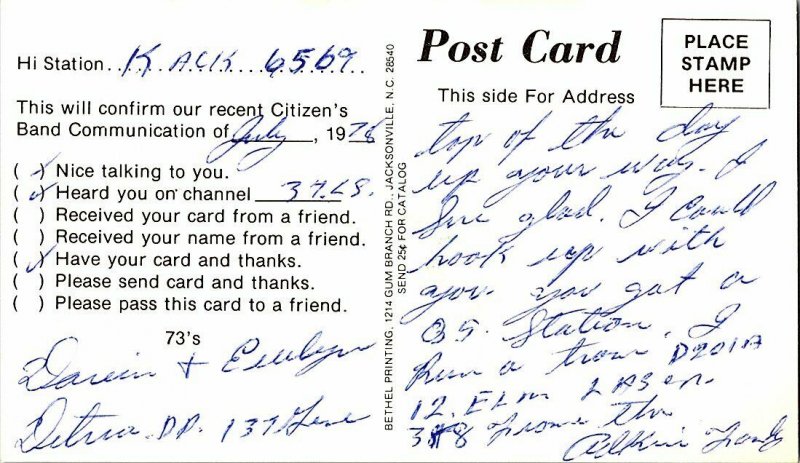 Hi Station..K ACK 6569
This will confirm our recent Citizen's
Band Communication of July, 1978
(✓) Nice talking to you.
(✓) Heard you on channel 37.LS.
( ) Received your card from a friend.
( ) Received your name from a friend.
(✓) Have your card and thanks.
( ) Please send card and thanks.
( ) Please pass this card to a friend.
73's
Darwin + Evelyn
137
BETHEL PRINTING, 1214 GUM BRANCH RD., JACKSONVILLE, N.C. 28540
SEND 25¢ FOR CATALOG
Post Card
This side For Address
PLACE
STAMP
HERE
top of the day
up your way. I
Sure glad. I could
hook up with
you. you got a
Station. I
Run a tram D201A
12. ELm LASer.
from the